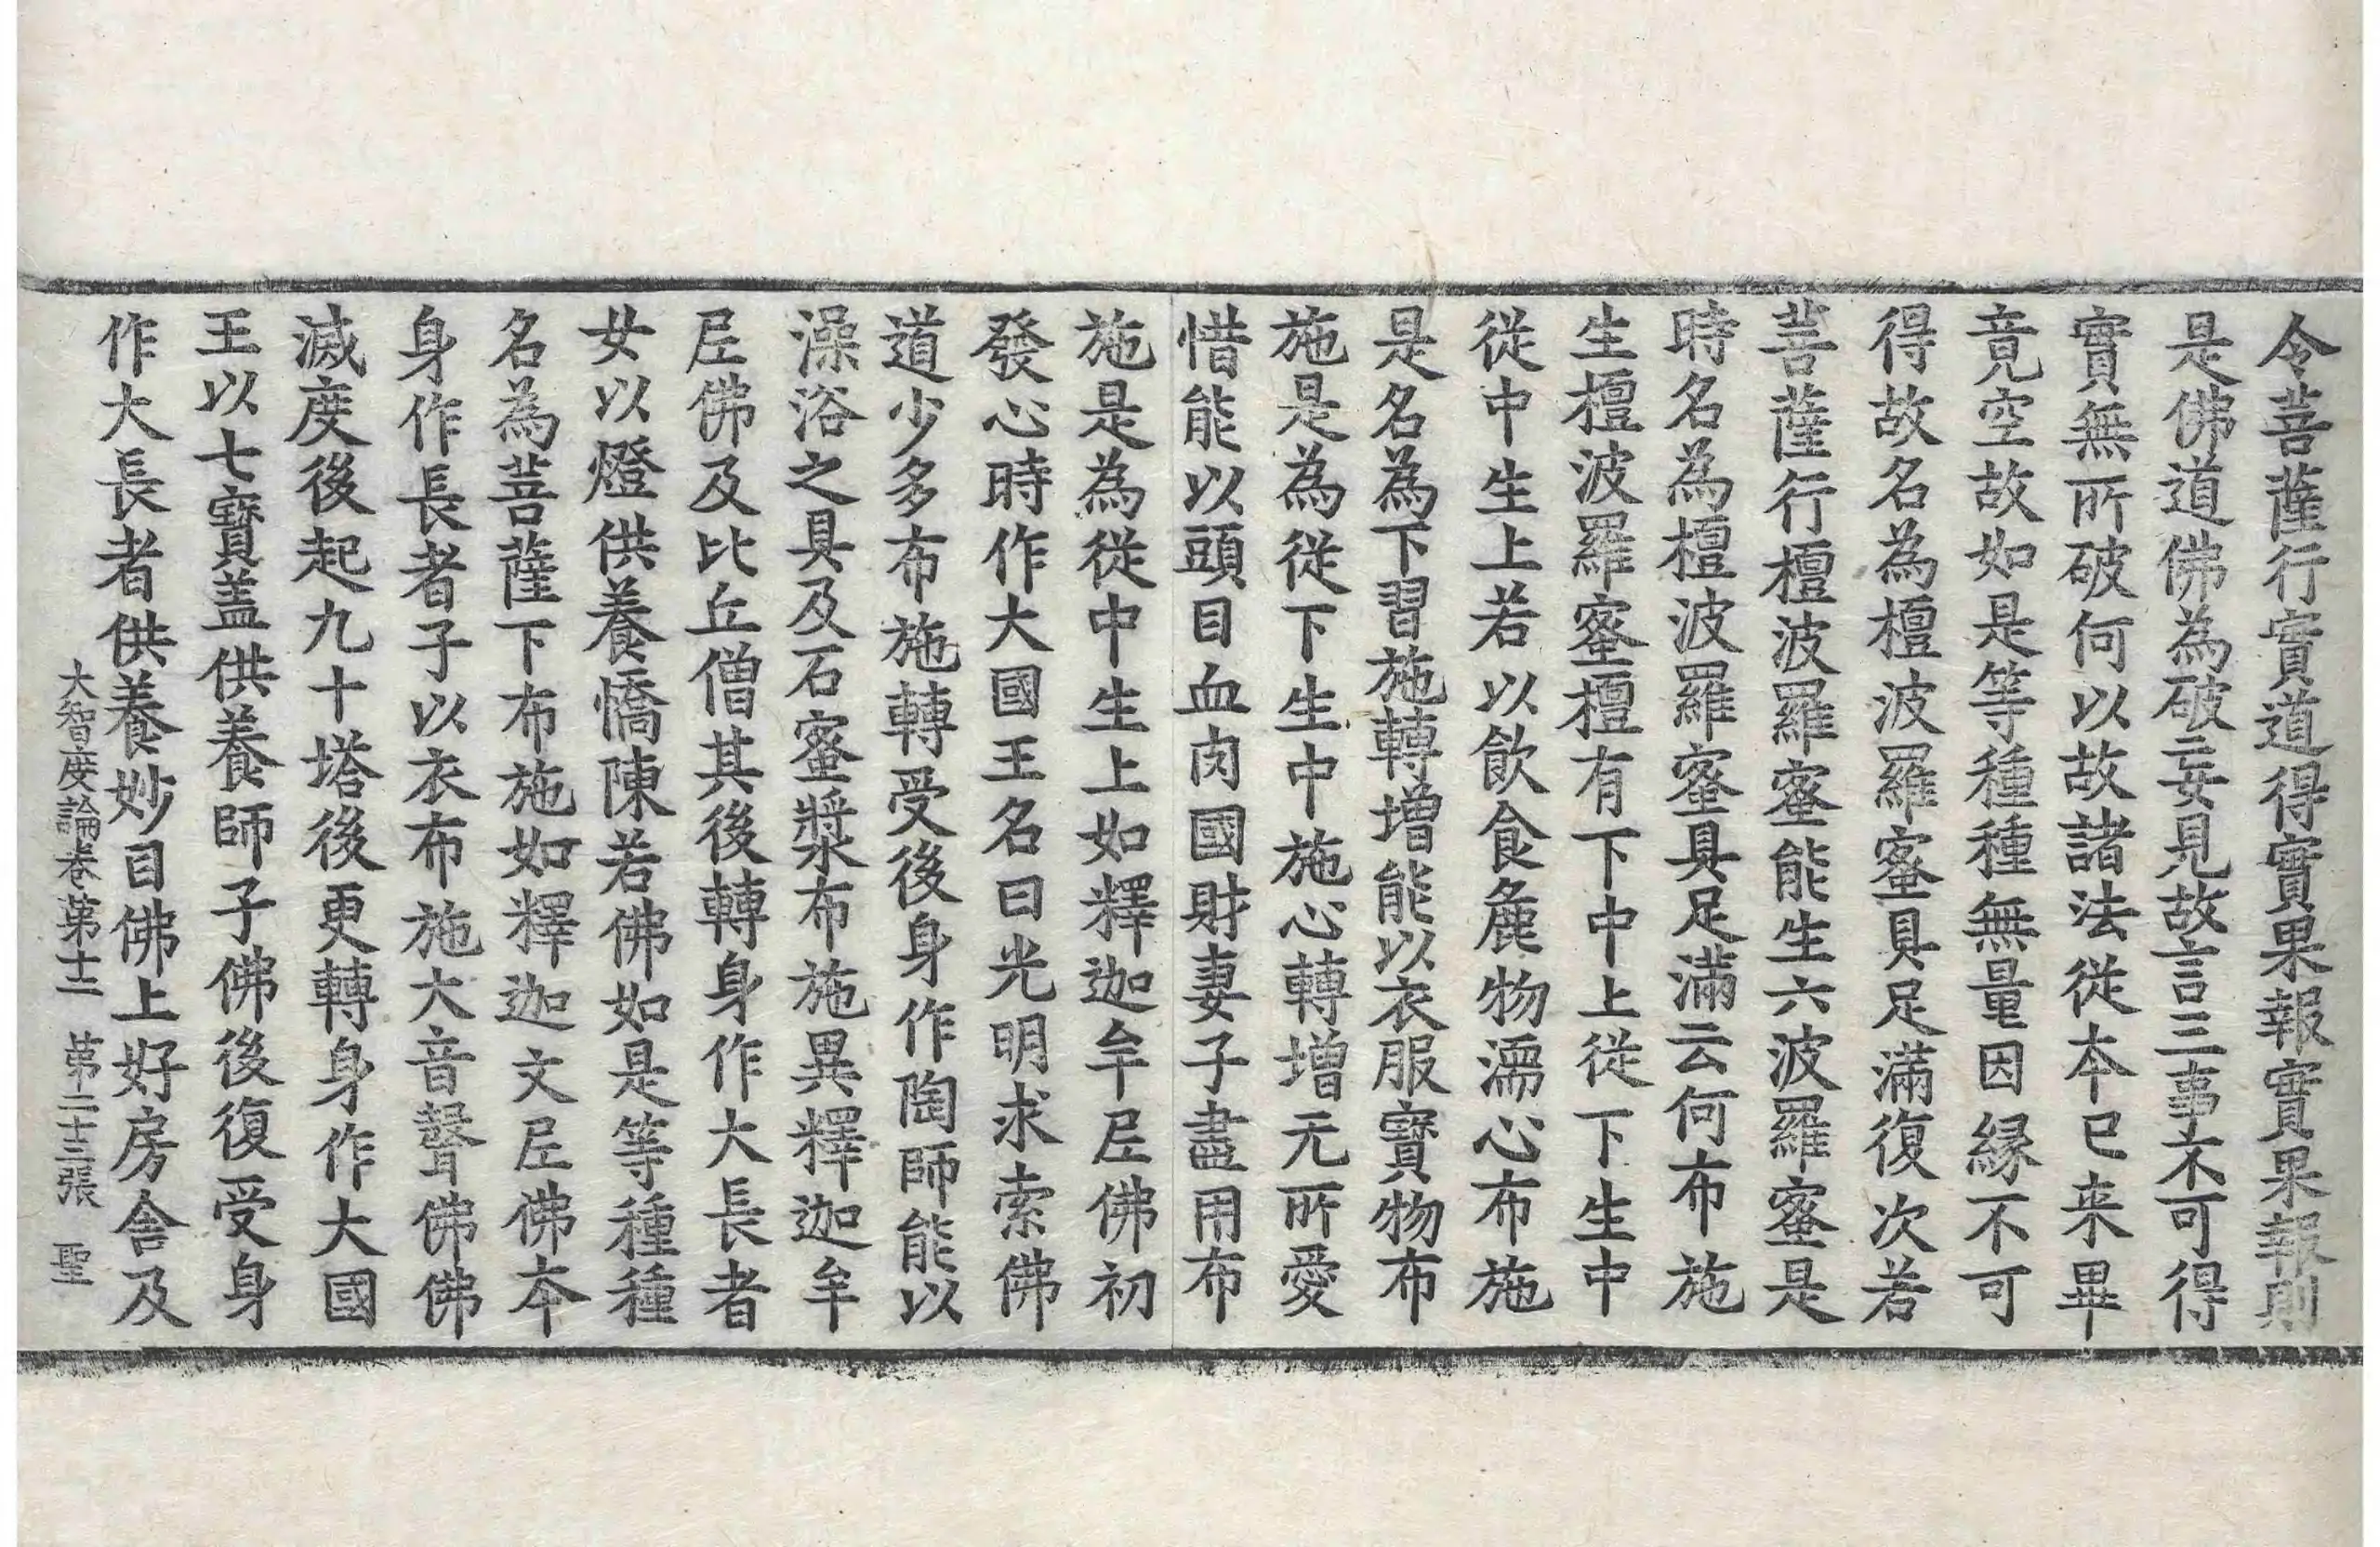 令菩薩行實道得實果報實果報則
是佛道佛為破妄見故言三事不可得
實無所破何以故諸法從本已来畢
竟空故如是等種種無量因縁不可
得故名為檀波羅蜜具足滿復次若
菩薩行檀波羅蜜能生六波羅蜜是
時名為檀波羅蜜具足滿云何布施
生檀波羅蜜檀有下中上從下生中
從中生上若以飲食麁物濡心布施
是名為下習施轉增能以衣服寶物布
施是為從下生中施心轉增无所愛
惜能以頭目血肉國財妻子盡用布
施是為從中生上如釋迦牟尼佛初
發心時作大國王名曰光明求索佛
道少多布施轉受後身作陶師能以
澡浴之具及石蜜漿布施異釋迦牟
尼佛及比丘僧其後轉身作大長者
女以燈供養憍陳若佛如是等種種
名為菩薩下布施如釋迦文尼佛本
身作長者子以衣布施大音聲佛佛
滅度後起九十塔後更轉身作大國
王以七寶盖供養師子佛後復受身
作大長者供養妙目佛上好房舍及
大智度論卷第十二 第二十三張 聖